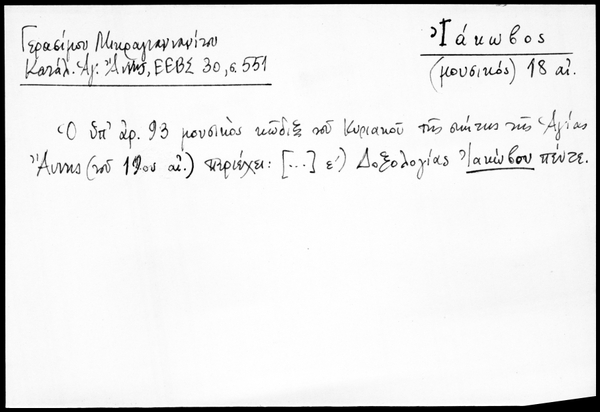 Γερασίμου Μικραγιαννανίτου
Κατάλ. Ἁγ. Ἄννης, ΕΕΒΣ 30, σ. 551
Ἰάκωβος
(μουσικός) 18 αἰ.
Ὁ ὑπ' ἀρ. 93 μουσικὸς κῶδιξ τοῦ Κυριακοῦ τῆς σκήτης τῆς Ἁγίας
Ἄννης (τοῦ 19ου αἰ.) περιέχει: [...] ε') Δοξολογίας Ἰακώβου πέντε.